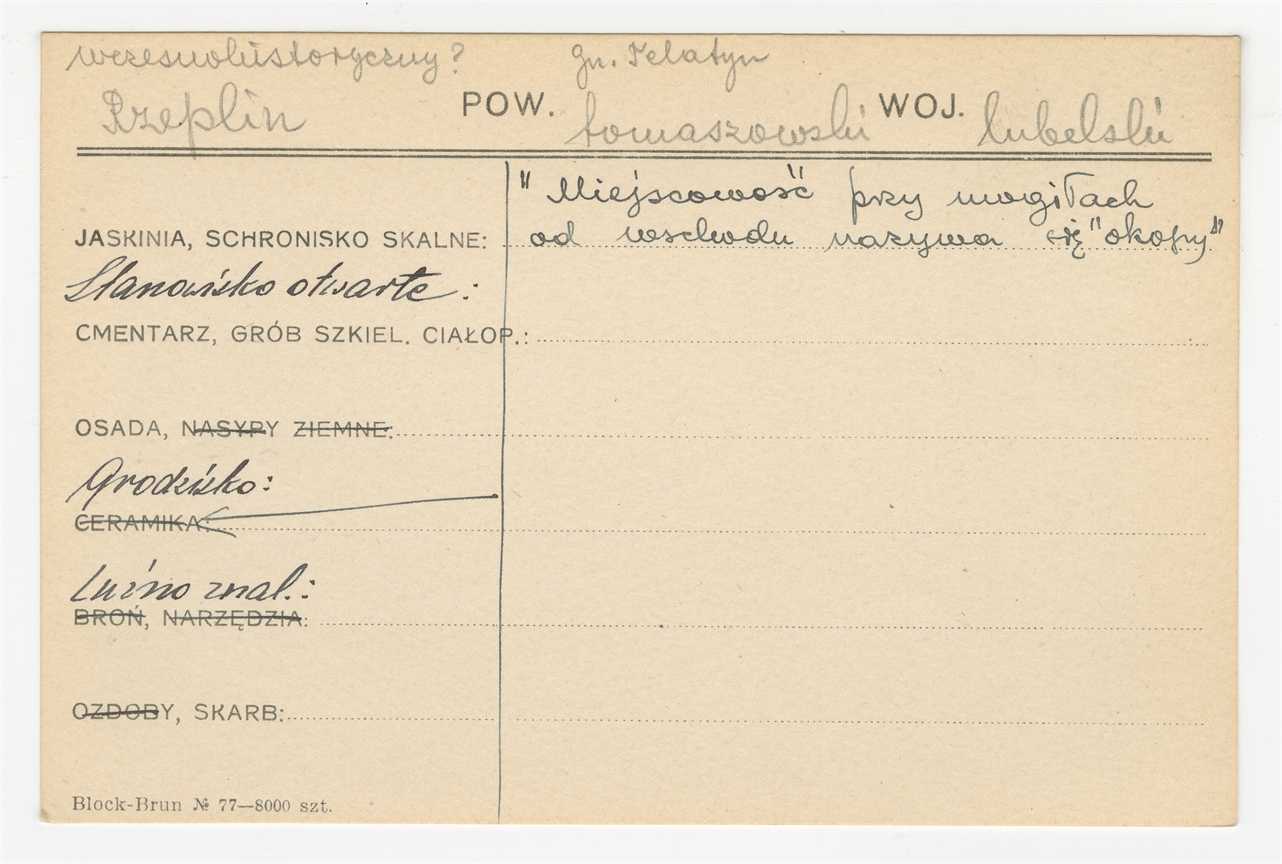 wczesnohistoryczny? gm. Telatyn
Rzeplin POW. tomaszowski WOJ. lubelski
" Miejscowość przy mogiłach
JASKINIA, SCHRONISKO SKALNE: od wschodu nazywa się "okopy"
Stanowisko otwarte :
CMENTARZ, GRÓB SZKIEL. CIAŁOP.:
OSADA, NASYPY ZIEMNE:
Grodzisko:
CERAMIKA:
Luźno znal.:
BROŃ, NARZĘDZIA:
OZDOBY, SKARB:
Block-Brun № 77—8000 szt.